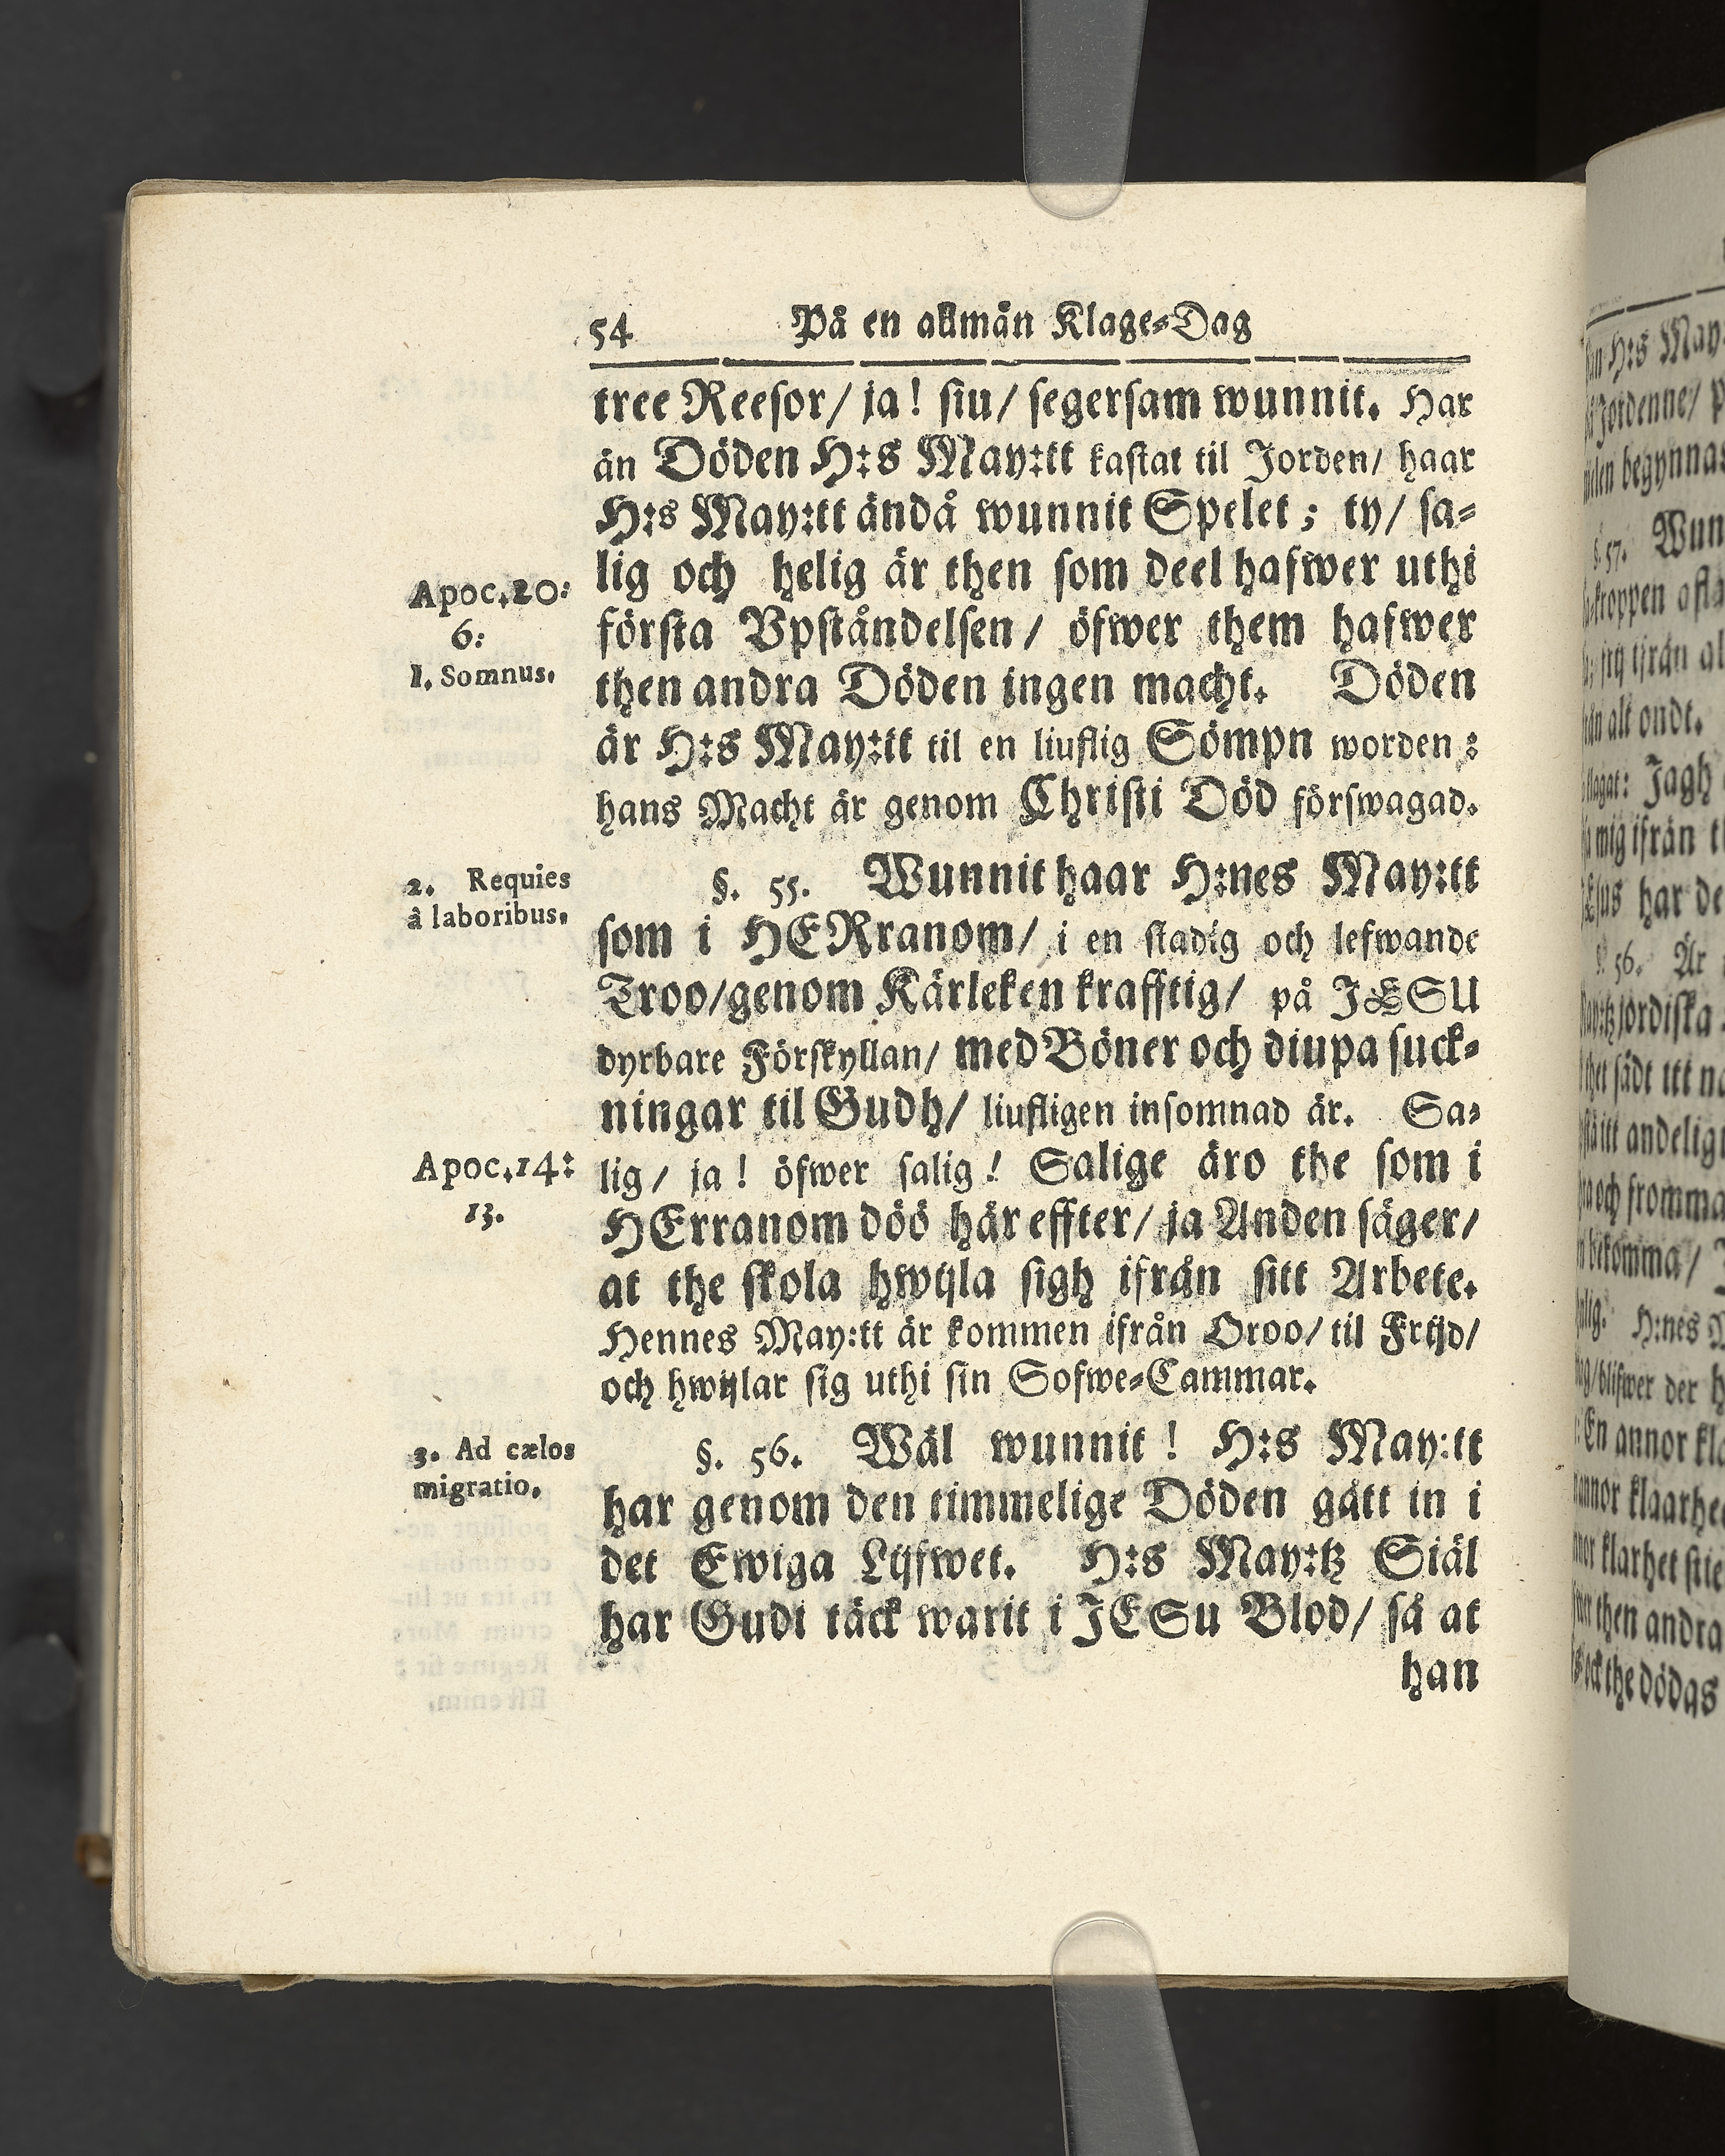 54 På en allmän Klage-Dag
tree Reesor/ ja! siu/ segersam wunnit. Har
än Döden H:s May:tt kastat til Jorden/ haar
H:s May:tt ändå wunnit Spelet; ty/ sa-
lig och helig är then som deel hafwer uthi
Apoc. 20:
6:
första Vpståndelsen/ öfwer them hafwer
1. Somnus.
then andra Döden ingen macht. Döden
är H:s May:tt til en liuflig Sömpn worden:
hans Macht är genom Christi Död förswagad.
§. 55. Wunnit haar H:nes May:tt
2. Requies
à laboribus.
som i HERranom/ i en stadig och lefwande
Troo/genom Kärleken krafftig/ på JESU
dyrbare Förskyllan/ med Böner och diupa suck-
ningar til Gudh/ liufligen insomnad är. Sa-
lig/ ja! öfwer salig! Salige äro the som i
Apoc. 14:
13.
HErranom döö här effter/ ja Anden säger/
at the skola hwijla sigh ifrån sitt Arbete.
Hennes May:tt är kommen ifrån Oroo/ til Frijd/
och hwijlar sig uthi sin Sofwe-Cammar.
§. 56. Wäl wunnit! H:s May:tt
3. Ad cælos
migratio.
har genom den timmelige Döden gått in i
det Ewiga Lijfwet. H:s May:tz Siäl
har Gudi täck warit i JESu Blod/ så at
han